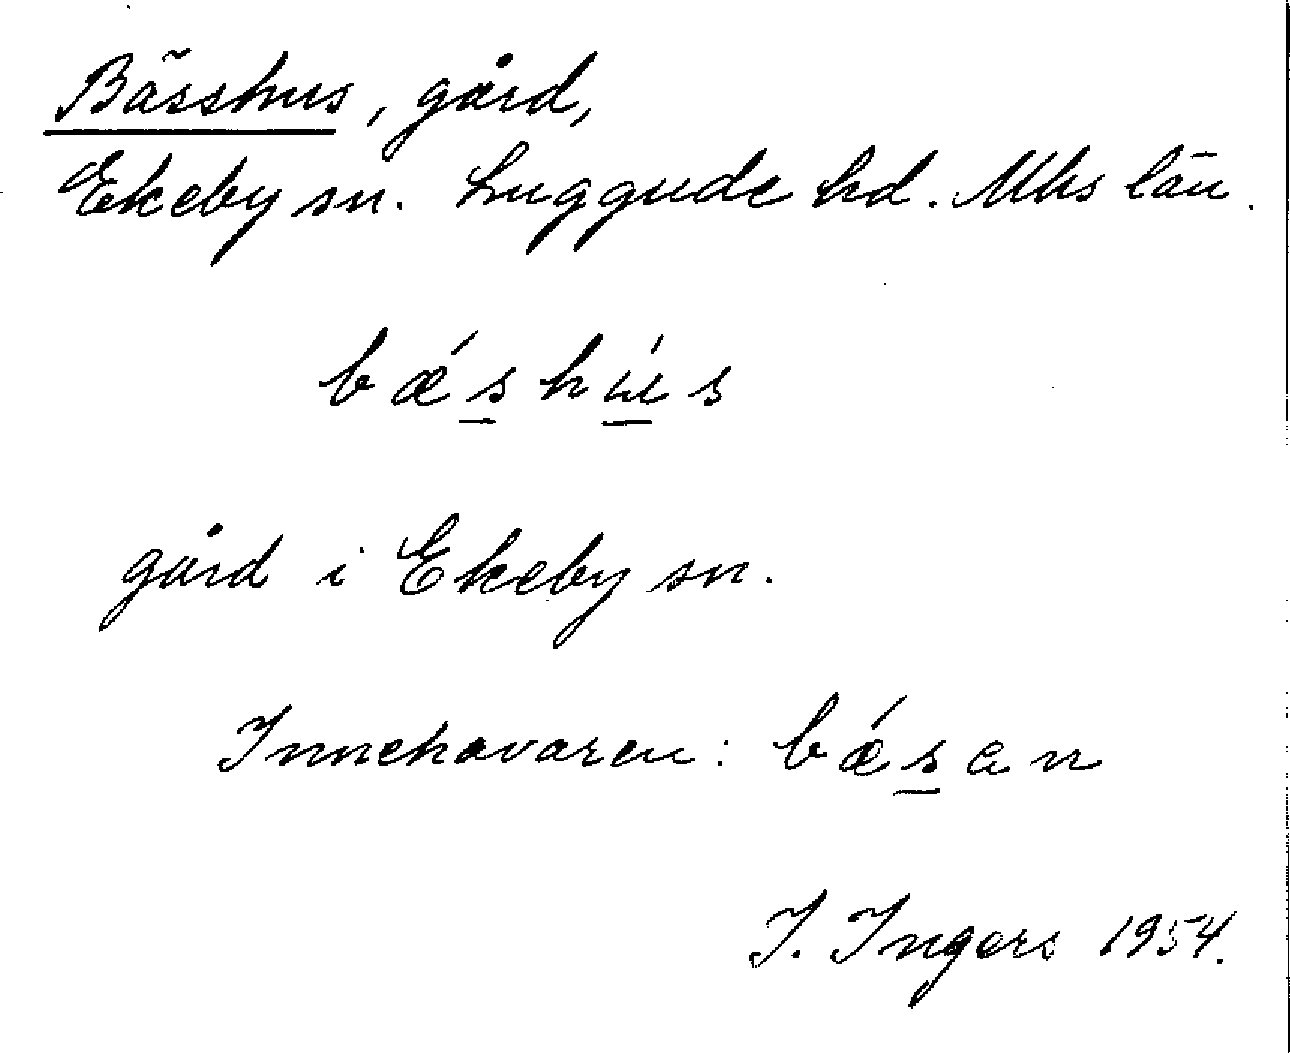 Bässhus, gård,
Ekeby sn. Luggude hd. Mhs län.
bǽs̲hú̲s
gård i Ekeby sn.
Innehavaren: bǽs̲an
I. Ingers 1954.